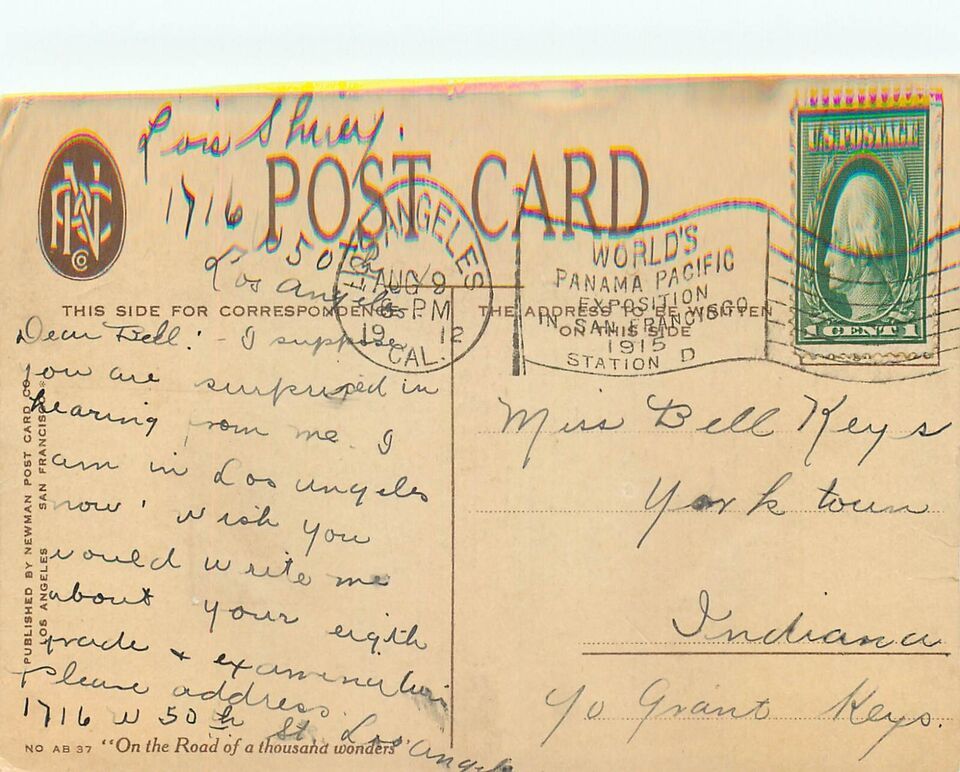 Lois Shuey.
1716 W 50th
Los Angeles
NPCCo
POST CARD
LOS ANGELES
AUG 9
6-PM
1912
CAL.
WORLD'S
PANAMA PACIFIC
EXPOSITION
IN SAN FRANCISCO
1915
STATION D
U.S. POSTAGE
1 CENT 1
THIS SIDE FOR CORRESPONDENCE
THE ADDRESS TO BE WRITTEN
ON THIS SIDE
Dear Bell: - I suppose
you are surprised in
hearing from me. I
am in Los Angeles
now. Wish you
would write me
about your eigth
grade + examination
Please address
1716 W 50th St. Los Angeles
Miss Bell Keys
York town
Indiana
c/o Grant Keys.
PUBLISHED BY NEWMAN POST CARD CO.
LOS ANGELES SAN FRANCISCO
NO AB 37 "On the Road of a thousand wonders"